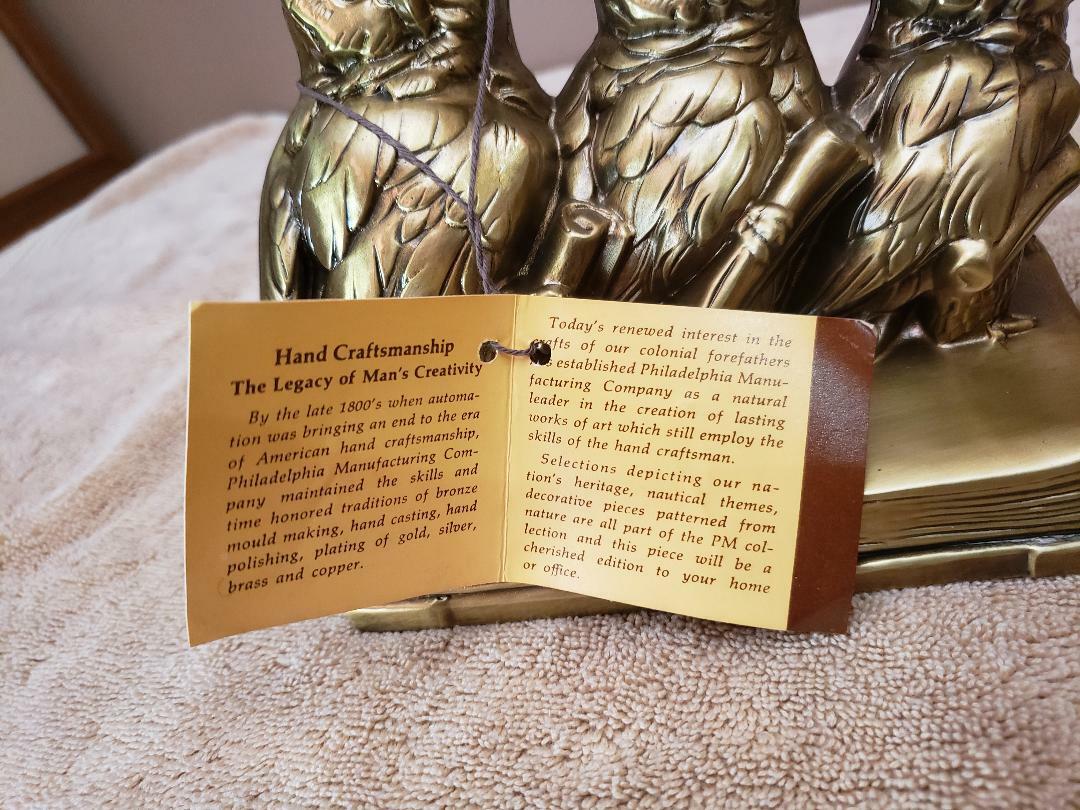 Hand Craftsmanship
The Legacy of Man's Creativity
By the late 1800's when automa-
tion was bringing an end to the era
of American hand craftsmanship,
Philadelphia Manufacturing Com-
pany maintained the skills and
time honored traditions of bronze
mould making, hand casting, hand
polishing, plating of gold, silver,
brass and copper.
Today's renewed interest in the
of our colonial forefathers
established Philadelphia Manu-
facturing Company as a natural
leader in the creation of lasting
works of art which still employ the
skills of the hand craftsman.
Selections depicting our na-
tion's heritage, nautical themes,
decorative pieces patterned from
nature are all part of the PM col-
lection and this piece will be a
cherished edition to your home
or office.